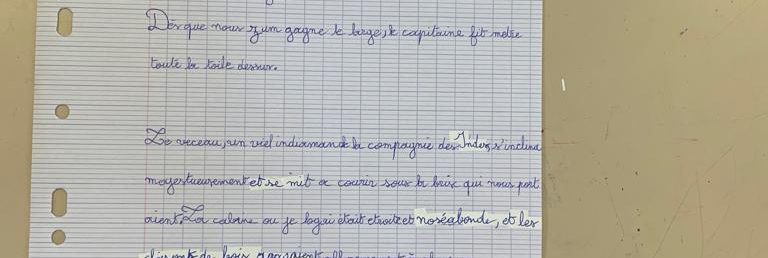 Dès que nous gagne le large, le capitaine fit metre
toute la toile dessur.
Le veceau, un viel indiaman de la compagnie des Indes, s'inclina
mayestueusement et se mit a courir sous la brise qui nous port
aient. La cabine ou je logai était etroite et noséabonde, et les
de bois